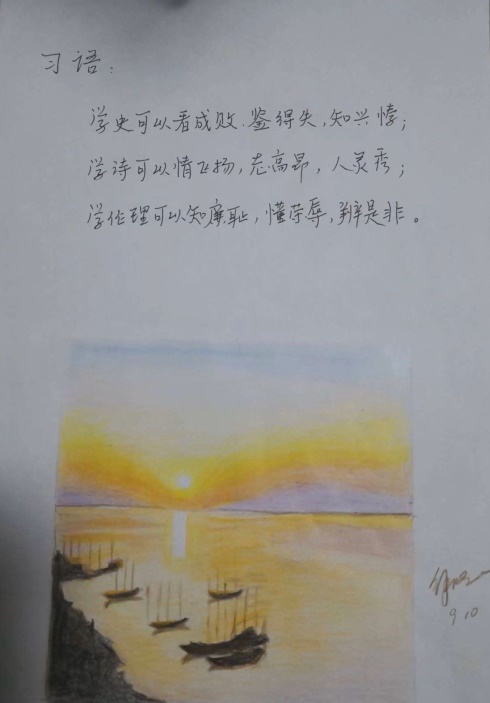 习语：
学史可以看成败、鉴得失，知兴悴；
学诗可以情飞扬，志高昂，人灵秀；
学伦理可以知廉耻，懂荣辱，辨是非。
9.10